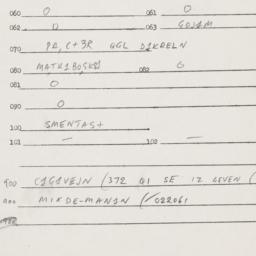 060 0 061 0
062 D 063 GOJAM
070 PR, C+3R GGL DIKDELN
080 MATKIBOSKSI 082 G
081 0
090 0
100 SMENTAS+
101 – 102 –
900 CIGIVEJN (372 QI SE IZ LEVEN (
900 MIKDE-MANIN /022061